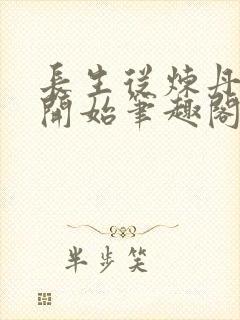 長生從煉丹
開始筆趣閣
半步笑